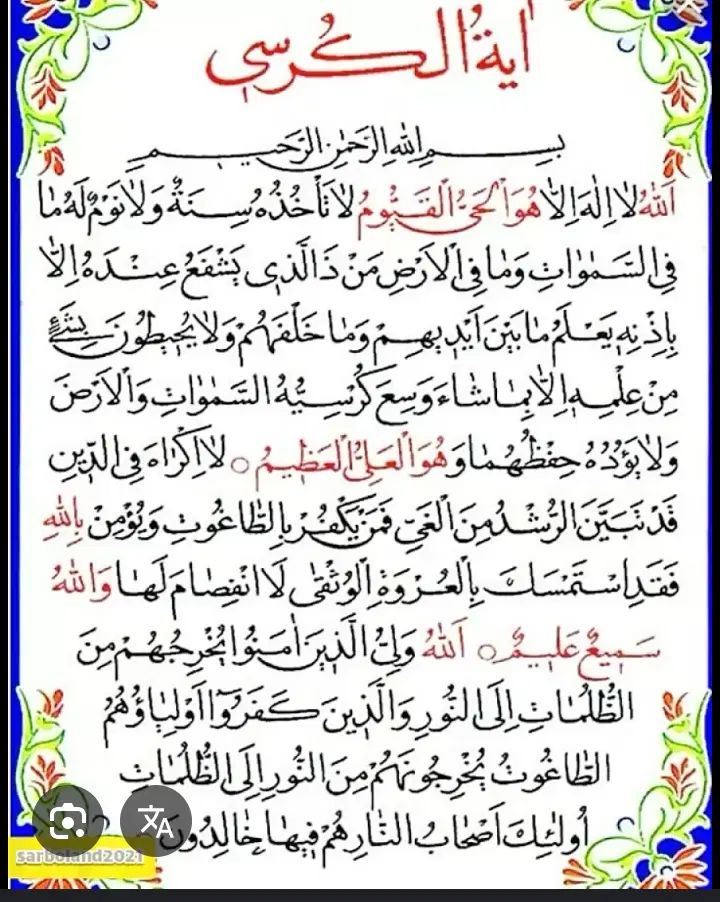 اٰیةُ الکُرسی
بِسْمِ اللهِ الرَّحْمٰنِ الرَّحیمِ
اَللهُ لا اِلٰهَ اِلّا هُوَ الْحَیُّ الْقَیُّومُ لا تَأْخُذُهُ سِنَةٌ وَ لا نَوْمٌ لَهُ ما
فِی السَّمٰوٰاتِ وَ ما فِی الْاَرْضِ مَنْ ذَا الَّذی یَشْفَعُ عِنْدَهُ اِلّا
بِاِذْنِهِ یَعْلَمُ ما بَیْنَ اَیْدیهِمْ وَ ما خَلْفَهُمْ وَ لا یُحیطُونَ بِشَیْءٍ
مِنْ عِلْمِهِ اِلّا بِما شاءَ وَسِعَ کُرْسِیُّهُ السَّمٰوٰاتِ وَ الْاَرْضَ
وَ لا یَؤُدُهُ حِفْظُهُما وَ هُوَ الْعَلِیُّ الْعَظیمُ ○ لا اِکْراهَ فِی الدّینِ
قَدْ تَبَیَّنَ الرُّشْدُ مِنَ الْغَیِّ فَمَنْ یَکْفُرْ بِالطّاغُوتِ وَ یُؤْمِنْ بِاللهِ
فَقَدِ اسْتَمْسَكَ بِالْعُرْوَةِ الْوُثْقیٰ لَا انْفِصامَ لَها وَ اللهُ
سَمیعٌ عَلیمٌ ○ اَللهُ وَلِیُّ الَّذینَ اٰمَنُوا یُخْرِجُهُمْ مِنَ
الظُّلُمٰاتِ اِلَی النُّورِ وَ الَّذینَ کَفَرُوٓا اَوْلِیاؤُهُمُ
الطّاغُوتُ یُخْرِجُونَهُمْ مِنَ النُّورِ اِلَی الظُّلُمٰاتِ
اُولٰئِكَ اَصْحٰابُ النّارِ هُمْ فیهٰا خٰالِدُونَ
sarboland2021